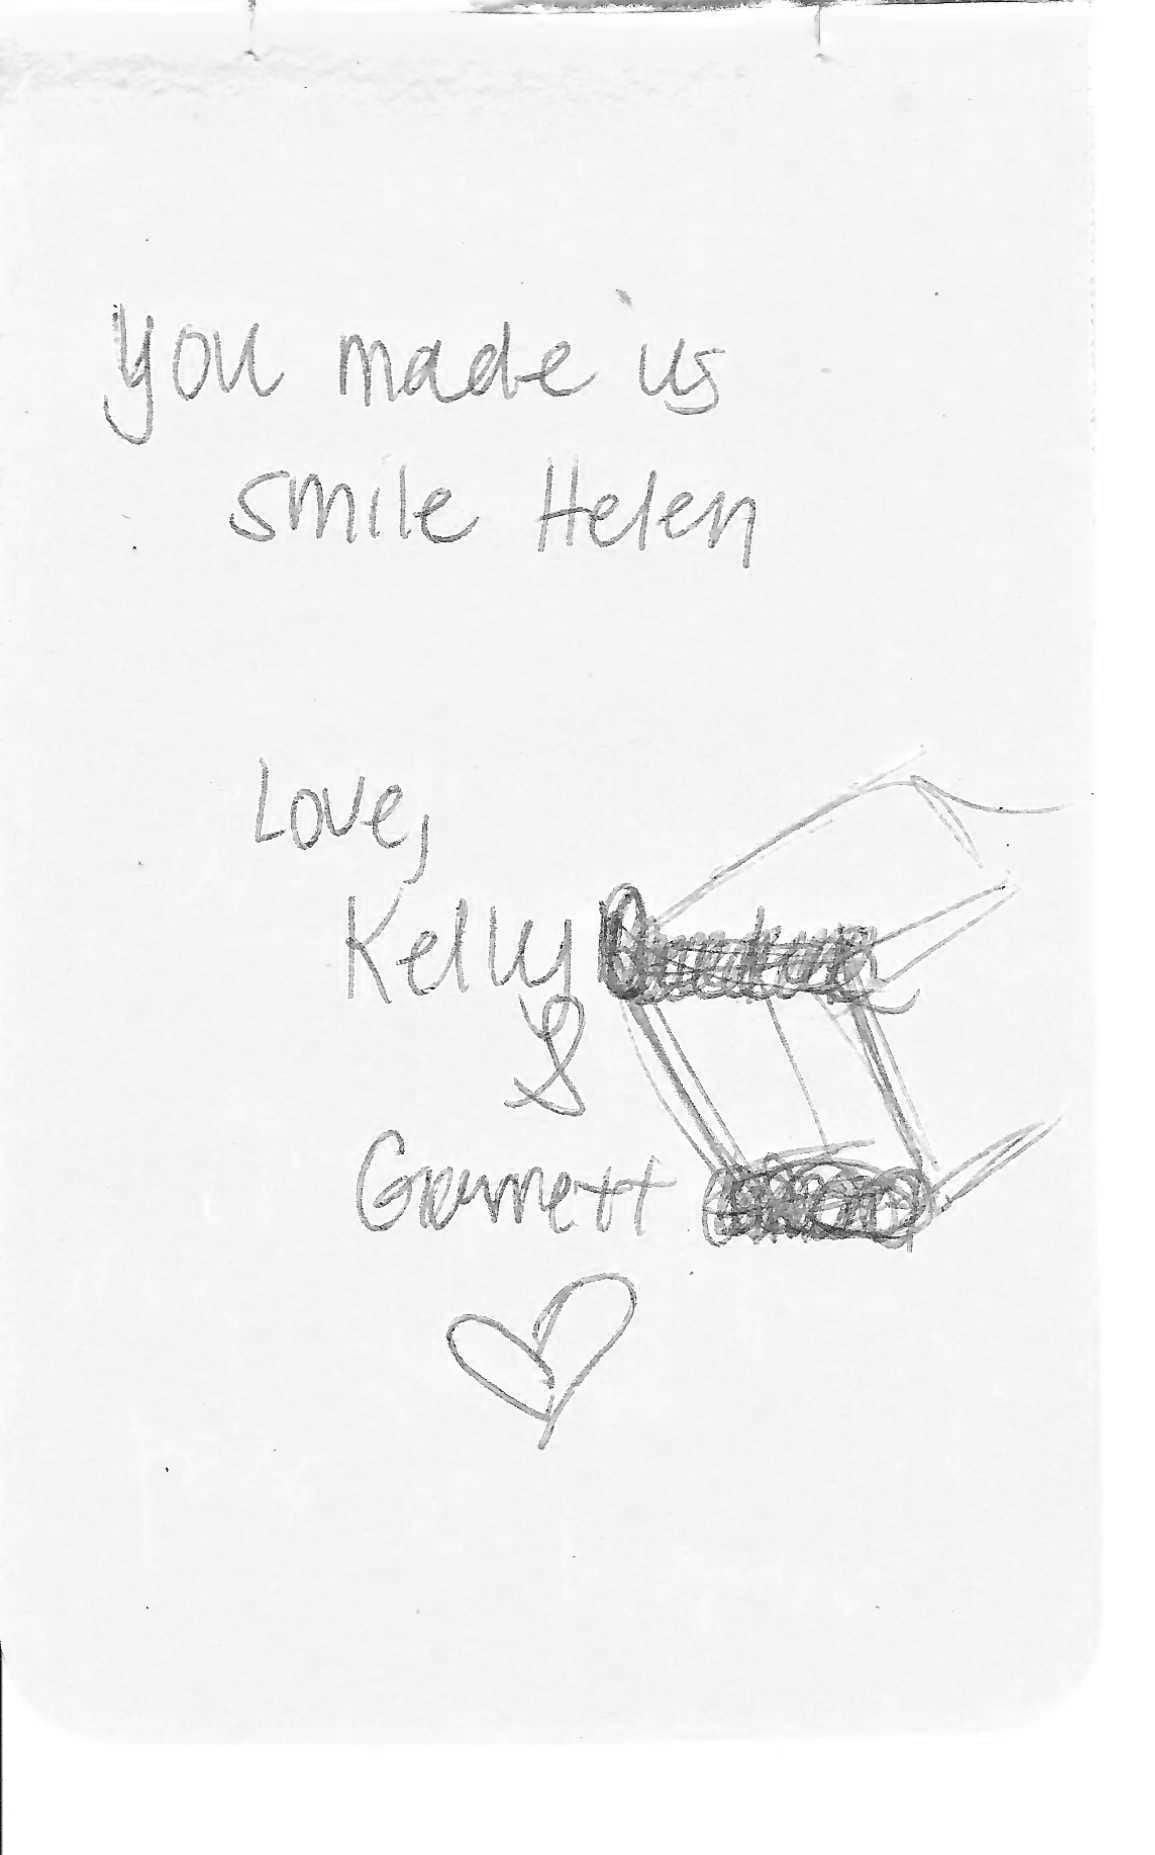 you made us
smile Helen
Love,
Kelly
&
Garrett